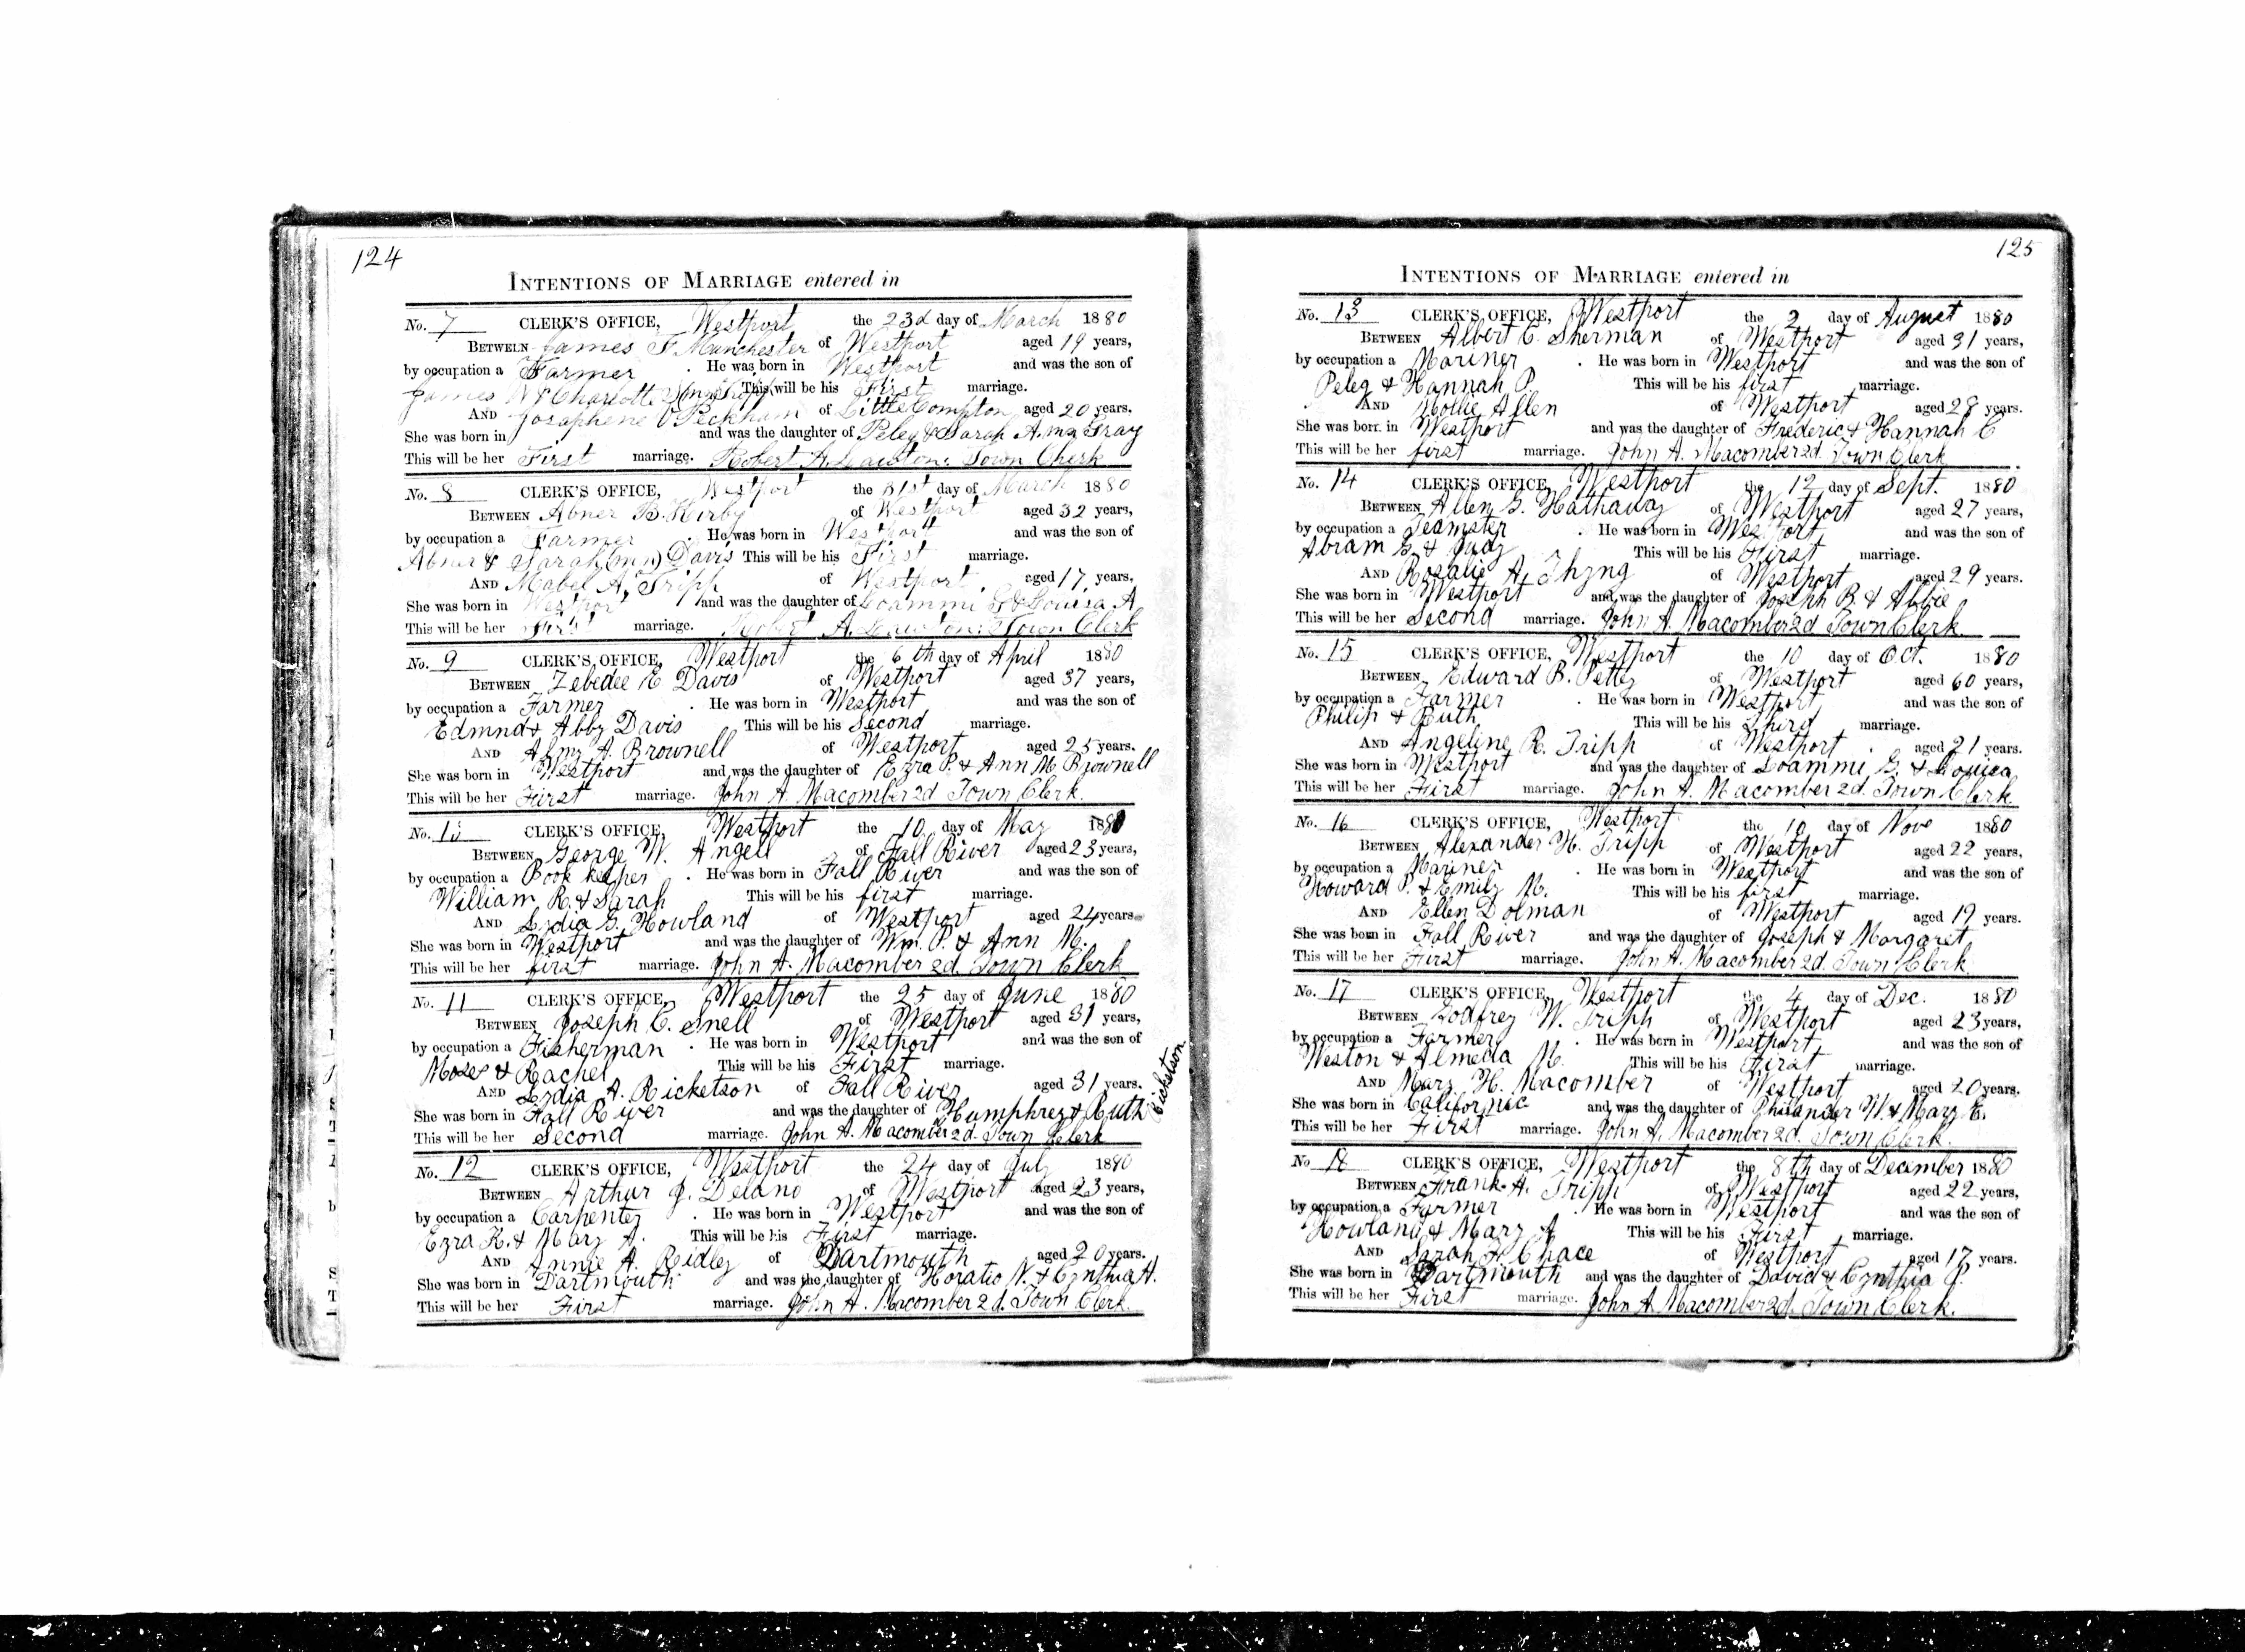 124
INTENTIONS OF MARRIAGE entered in
No. 7 CLERK'S OFFICE, Westport the 23d day of March 1880
BETWEEN James F. Manchester of Westport aged 19 years,
by occupation a Farmer . He was born in Westport and was the son of
James & Charlotte This will be his First marriage.
AND Josephene Peckham of Little Compton aged 20 years.
She was born in and was the daughter of Peleg & Sarah A. Gray
This will be her First marriage. Robert A. Lawton. Town Clerk
No. 8 CLERK'S OFFICE, Westport the 31st day of March 1880
BETWEEN Abner B. Kirby of Westport aged 32 years,
by occupation a Farmer . He was born in Westport and was the son of
Abner & Sarah (mn) Davis This will be his First marriage.
AND Mabel A. Tripp of Westport aged 17 years,
She was born in Westpor and was the daughter of Loammi G & Louisa A
This will be her First marriage. Robert A. Lawton. Town Clerk
No. 9 CLERK'S OFFICE, Westport the 6th day of April 1880
BETWEEN Zebedee E Davis of Westport aged 37 years,
by occupation a Farmer . He was born in Westport and was the son of
Edmnd & Abby Davis This will be his Second marriage.
AND Almy A. Brownell of Westport aged 25 years.
She was born in Westport and was the daughter of Ezra P. & Ann M Brownell
This will be her First marriage. John A. Macomber 2d Town Clerk.
No. 10 CLERK'S OFFICE, Westport the 10 day of May 1880
BETWEEN George W. Angell of Fall River aged 23 years,
by occupation a Book keeper . He was born in Fall River and was the son of
William R. & Sarah This will be his first marriage.
AND Lydia G. Howland of Westport aged 24 years
She was born in Westport and was the daughter of Wm. P. & Ann M.
This will be her first marriage. John A. Macomber 2d. Town Clerk
No. 11 CLERK'S OFFICE, Westport the 25 day of June 1880
BETWEEN Joseph C. Snell of Westport aged 31 years,
by occupation a Fisherman . He was born in Westport and was the son of
Moses & Rachel This will be his First marriage.
AND Lydia A. Ricketson of Fall River aged 31 years.
She was born in Fall River and was the daughter of Humphrey & Ruth
This will be her Second marriage. John A. Macomber 2d. Town Clerk
No. 12 CLERK'S OFFICE, Westport the 24 day of July 1880
BETWEEN Arthur J. Delano of Westport aged 23 years,
by occupation a Carpenter . He was born in Westport and was the son of
Ezra R. & Mary A. This will be his First marriage.
AND Annie A. Ridley of Dartmouth aged 20 years.
She was born in Dartmouth and was the daughter of Horatio N. & Cynthia A.
This will be her First marriage. John A. Macomber 2d. Town Clerk
125
INTENTIONS OF MARRIAGE entered in
No. 13 CLERK'S OFFICE, Westport the 2 day of August 1880
BETWEEN Albert C. Sherman of Westport aged 31 years,
by occupation a Mariner . He was born in Westport and was the son of
Peleg & Hannah P. This will be his first marriage.
AND Mollie Allen of Westport aged 28 years.
She was born in Westport and was the daughter of Frederic & Hannah C
This will be her first marriage. John A. Macomber 2d. Town Clerk
No. 14 CLERK'S OFFICE, Westport the 12 day of Sept. 1880
BETWEEN Allen G. Hathaway of Westport aged 27 years,
by occupation a Teamster . He was born in Westport and was the son of
Abram G. & Judy This will be his First marriage.
AND Rosalie A. Thyng of Westport aged 29 years.
She was born in Westport and was the daughter of Joseph B. & Abbie
This will be her Second marriage. John A. Macomber 2d Town Clerk.
No. 15 CLERK'S OFFICE, Westport the 10 day of Oct. 1880
BETWEEN Edward B. Pettey of Westport aged 60 years,
by occupation a Farmer . He was born in Westport and was the son of
Philip & Ruth This will be his Third marriage.
AND Angeline R. Tripp of Westport . aged 21 years.
She was born in Westport and was the daughter of Loammi G. & Louisa
This will be her First marriage. John A. Macomber 2d. Town Clerk
No. 16 CLERK'S OFFICE, Westport the 10 day of Nove 1880
BETWEEN Alexander H. Tripp of Westport aged 22 years,
by occupation a Mariner . He was born in Westport and was the son of
Howard P. & Emily M. This will be his first marriage.
AND Ellen Dolman of Westport aged 19 years.
She was born in Fall River and was the daughter of Joseph & Margaret
This will be her First marriage. John A. Macomber 2d. Town Clerk
No. 17 CLERK'S OFFICE, Westport the 4 day of Dec. 1880
BETWEEN Godfrey W. Tripp of Westport aged 23 years,
by occupation a Farmer . He was born in Westport and was the son of
Weston & Almeda M. This will be his First marriage.
AND Mary H. Macomber of Westport aged 20 years.
She was born in California and was the daughter of Philander W. & Mary E.
This will be her First marriage. John A. Macomber 2d. Town Clerk.
No 18 CLERK'S OFFICE, Westport the 8th day of December 1880
BETWEEN Frank A. Tripp of Westport aged 22 years,
by occupation a Farmer . He was born in Westport and was the son of
Howland & Mary A This will be his First marriage.
AND Sarah A Chace of Westport aged 17 years.
She was born in Dartmouth and was the daughter of David & Cynthia P.
This will be her First marriage. John A Macomber 2d. Town Clerk.